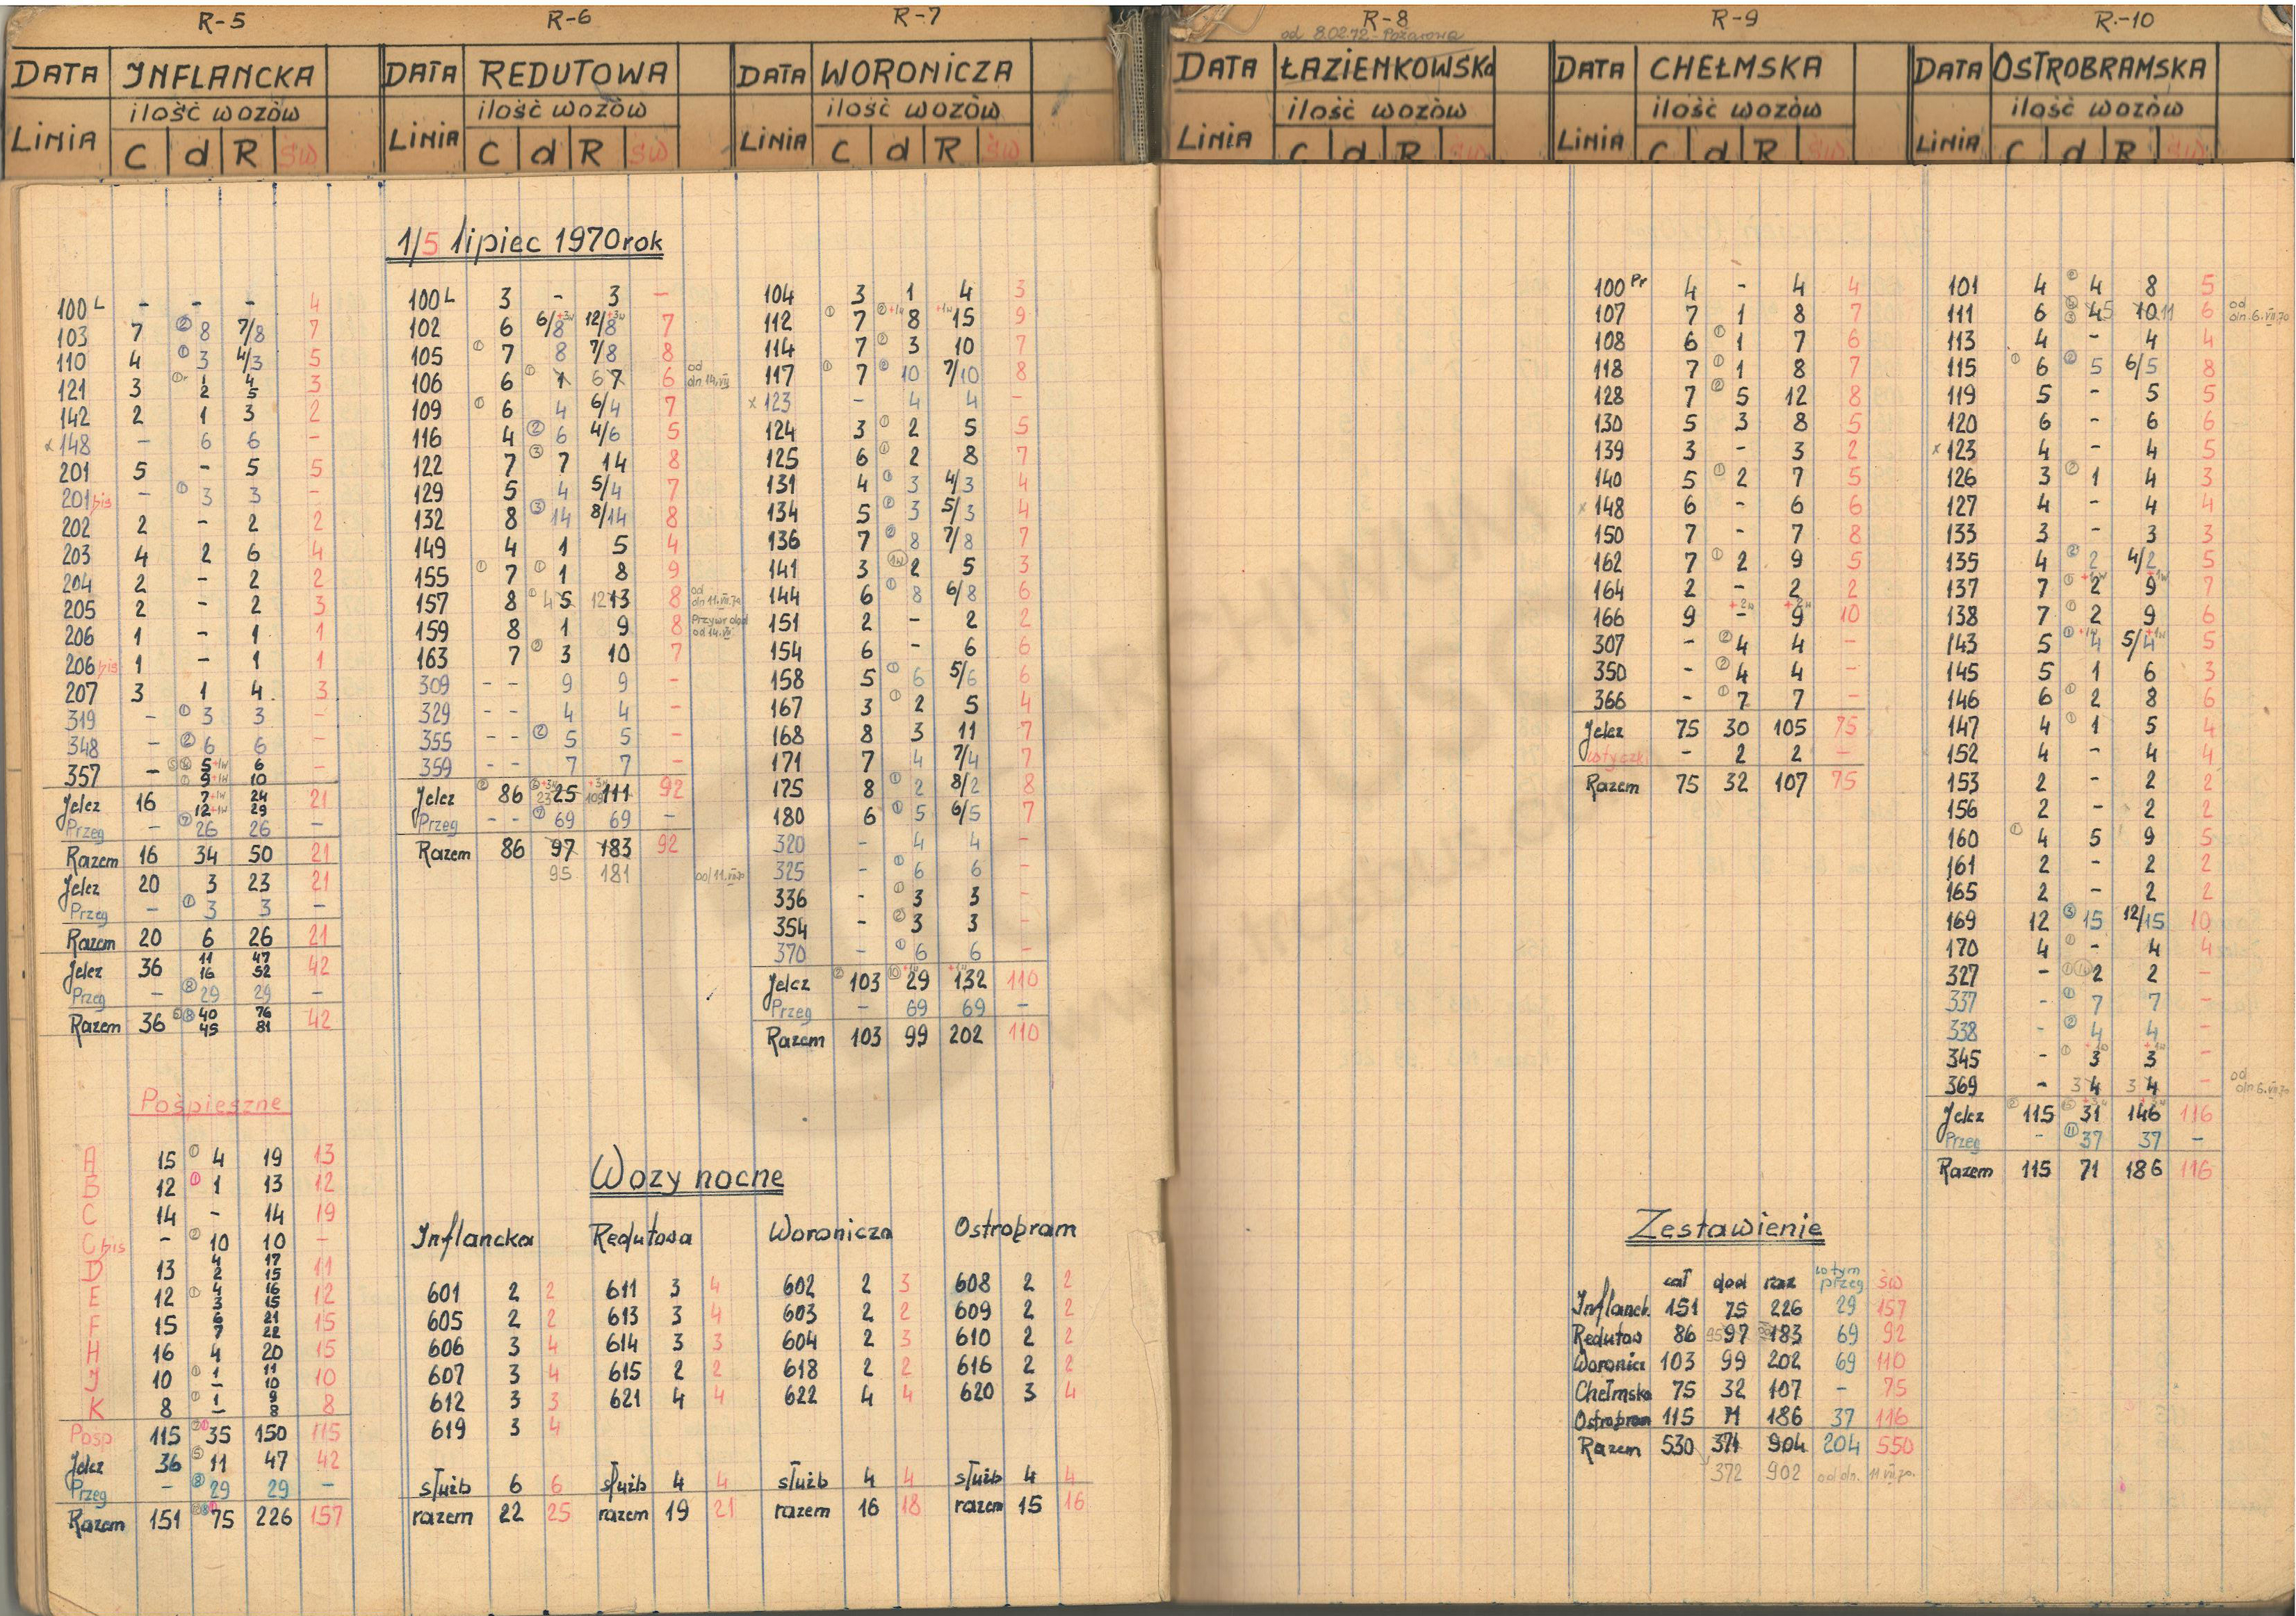 R-5 R-6 R-7 R-8 R-9 R.-10
od 8.02.72 - Pożarowa
DATA INFLANCKA DATA REDUTOWA DATA WORONICZA DATA ŁAZIENKOWSKA DATA CHEŁMSKA DATA OSTROBRAMSKA
ilość wozów ilość wozów ilość wozów ilość wozów ilość wozów ilość wozów
LINIA C d R św LINIA C d R św LINIA C d R św LINIA C d R św LINIA C d R św LINIA C d R św
1/5 lipiec 1970 rok
100 L - - - 4
103 7 ② 8 7/8 7
110 4 ① 3 4/3 5
121 3 1 2 4 5 3
142 2 1 3 2
x 148 - 6 6 -
201 5 - 5 5
201 bis - ① 3 3 -
202 2 - 2 2
203 4 2 6 4
204 2 - 2 2
205 2 - 2 3
206 1 - 1 1
206 bis 1 - 1 1
207 3 1 4 3
319 - ① 3 3 -
348 - ② 6 6 -
357 - 5 +1w 6 -
9 +1w 10
Jelcz 16 7 +1w 24 21
12 +1w 29
Przeg - ⑦ 26 26 -
Razem 16 34 50 21
Jelcz 20 3 23 21
Przeg - ① 3 3 -
Razem 20 6 26 21
Jelcz 36 11 47 42
16 52
Przeg - ⑧ 29 29 -
Razem 36 40 76 42
45 81
Pośpieszne
A 15 ① 4 19 13
B 12 ① 1 13 12
C 14 - 14 19
C bis - ② 10 10 -
D 13 4 17 11
2 15
E 12 ① 4 16 12
3 15
F 15 6 21 15
7 22
H 16 4 20 15
J 10 ① 1 11 10
- 10
K 8 ① 1 9 8
- 8
Pośp 115 35 150 115
Jelcz 36 ⑤ 11 47 42
Przeg - ⑧ 29 29 -
Razem 151 75 226 157
100 L 3 - 3 -
102 6 6/8 +3w 12/8 +3w 7
105 ① 7 8 7/8 8
106 6 ① 1 6 7 6 od dn. 14.VII
109 ① 6 4 6/4 7
116 4 ② 6 4/6 5
122 7 ③ 7 14 8
129 5 4 5/4 7
132 8 ③ 14 8/14 8
149 4 1 5 4
155 ① 7 ① 1 8 9
157 8 ① 4 5 12 13 8 od dn. 11.VII.70
159 8 1 9 8 Przywr dod od 14.VII
163 7 ② 3 10 7
309 - - 9 9 -
329 - - 4 4 -
355 - - ② 5 5 -
359 - - 7 7 -
Jelcz ② 86 ⑥ +3w 23 25 +3w 109 111 92
Przeg - - ⑦ 69 69 -
Razem 86 97 183 92
95 181 od 11.VII.70
104 3 1 4 3
112 ① 7 ② +1w 8 +1w 15 9
114 7 ② 3 10 7
117 ① 7 ② 10 7/10 8
x 123 - 4 4 -
124 3 ① 2 5 5
125 6 ① 2 8 7
131 4 ① 3 4/3 4
134 5 ② 3 5/3 4
136 7 ② 8 7/8 7
141 3 1w 2 5 3
144 6 ① 8 6/8 6
151 2 - 2 2
154 6 - 6 6
158 5 ① 6 5/6 6
167 3 ① 2 5 4
168 8 3 11 7
171 7 4 7/4 7
175 8 ① 2 8/2 8
180 6 ① 5 6/5 7
320 - 4 4 -
325 - ① 6 6 -
336 - ① 3 3 -
354 - ② 3 3 -
370 - ① 6 6 -
Jelcz ② 103 ⑩ +1w 29 +1w 132 110
Przeg - 69 69 -
Razem 103 99 202 110
Wozy nocne
Inflancka Redutowa Woronicza Ostrobram
601 2 2 611 3 4 602 2 3 608 2 2
605 2 2 613 3 4 603 2 2 609 2 2
606 3 4 614 3 3 604 2 3 610 2 2
607 3 4 615 2 2 618 2 2 616 2 2
612 3 3 621 4 4 622 4 4 620 3 4
619 3 4
służb 6 6 służb 4 4 służb 4 4 służb 4 4
razem 22 25 razem 19 21 razem 16 18 razem 15 16
100 Pr 4 - 4 4
107 7 1 8 7
108 6 ① 1 7 6
118 7 ① 1 8 7
128 7 ② 5 12 8
130 5 3 8 5
139 3 - 3 2
140 5 ① 2 7 5
x 148 6 - 6 6
150 7 - 7 8
162 7 ① 2 9 5
164 2 - 2 2
166 9 +2w - +2w 9 10
307 - ② 4 4 -
350 - ② 4 4 -
366 - ① 7 7 -
Jelcz 75 30 105 75
- 2 2 -
Razem 75 32 107 75
101 4 ② 4 8 5
111 6 4 5 10 11 6 od dn. 6.VII.70
113 4 - 4 4
115 ① 6 ② 5 6/5 8
119 5 - 5 5
120 6 - 6 6
x 123 4 - 4 5
126 3 ② 1 4 3
127 4 - 4 4
133 3 - 3 3
135 4 ② 2 4/2 5
137 7 ① +1w 2 +1w 9 7
138 7 ① 2 9 6
143 5 ① +1w 4 5/4 +1w 5
145 5 1 6 3
146 6 ① 2 8 6
147 4 ① 1 5 4
152 4 - 4 4
153 2 - 2 2
156 2 - 2 2
160 ① 4 5 9 5
161 2 - 2 2
165 2 - 2 2
169 12 ③ 15 12/15 10
170 4 ① - 4 4
327 - 2 2 -
337 - ① 7 7 -
338 - ② 4 4 -
345 - ① 3 +1w 3 +1w -
369 - 3 4 3 4 - od dn. 6.VII.70
Jelcz ② 115 31 146 116
Przeg - ⑪ 37 37 -
Razem 115 71 186 116
Zestawienie
cał dod raz w tym przeg św
Inflanck. 151 75 226 29 157
Redutow 86 95 97 183 69 92
Woronicz 103 99 202 69 110
Chełmska 75 32 107 - 75
Ostrobram 115 71 186 37 116
Razem 530 374 904 204 550
372 902 od dn. 11.VII.70.